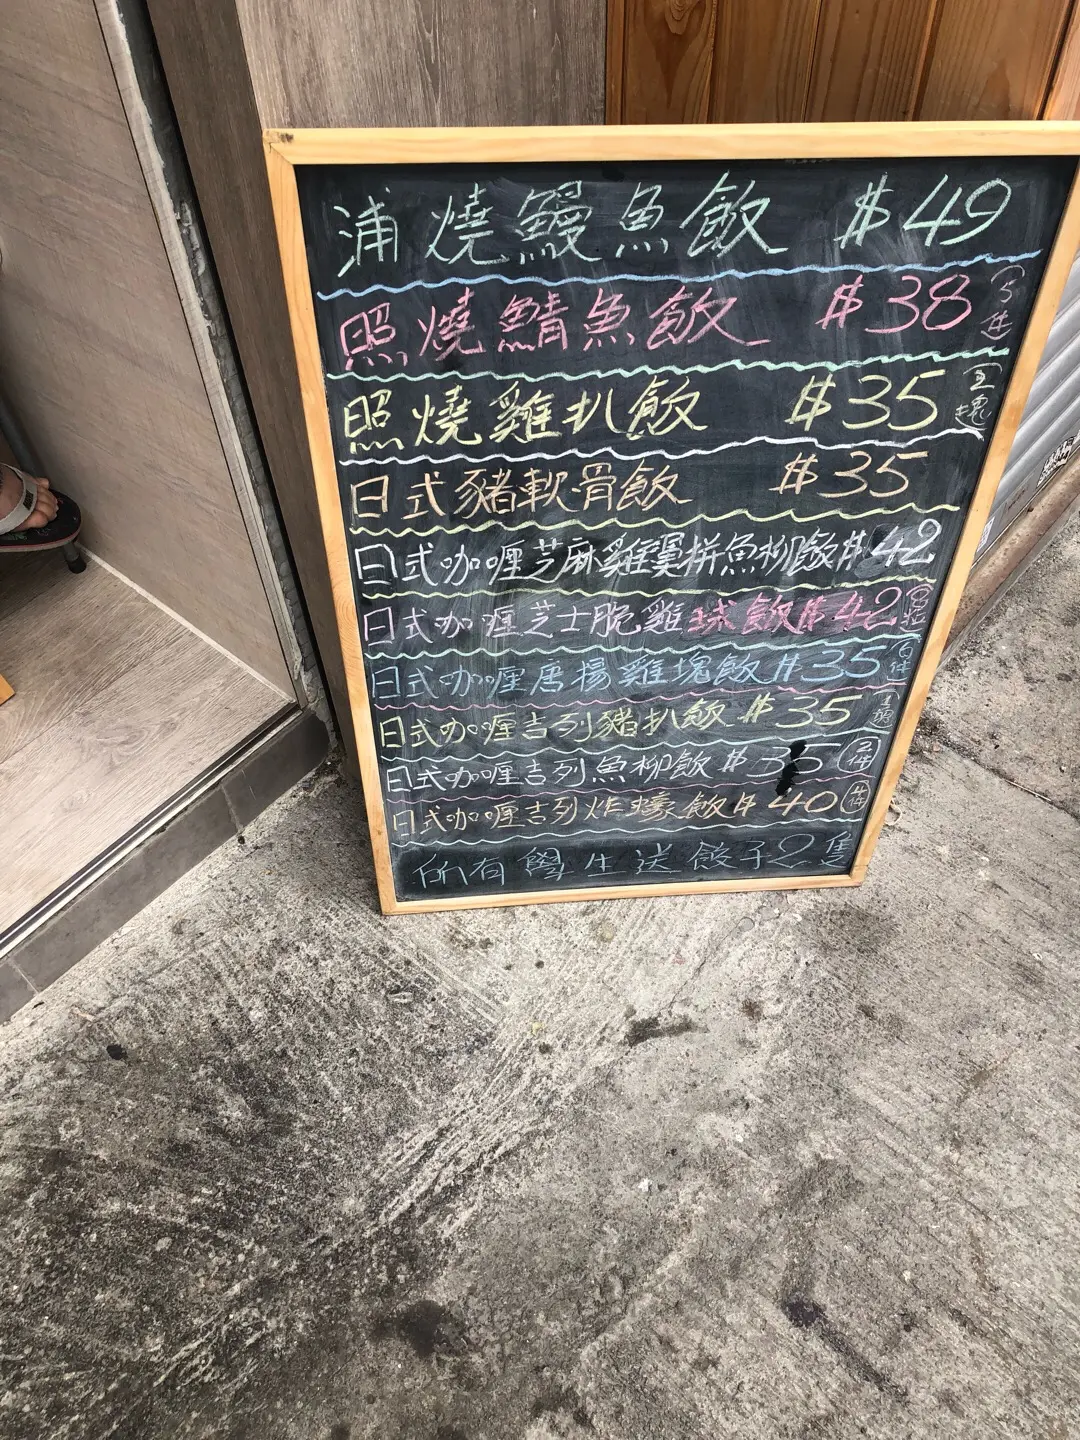 浦燒鰻魚飯 $49
照燒鯖魚飯 $38 5件
照燒雞扒飯 $35 塊
日式豬軟骨飯 $35
日式咖喱芝麻雞翼拼魚柳飯 $42
日式咖喱芝士脆雞球飯 $42
日式咖喱唐揚雞塊飯 $35 件
日式咖喱吉列豬扒飯 $35
日式咖喱吉列魚柳飯 $35 2件
日式咖喱吉列炸蠔飯 $40 4件
所有學生送餃子2隻